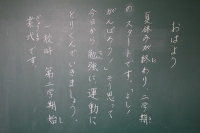 おはよう
夏休みが終わり、二学期
のスタートです。よし!
がんばろう!そう思って
今日から勉強に、運動に
とりくんでいきましょう。
一枚所 第二学期始
業式です。